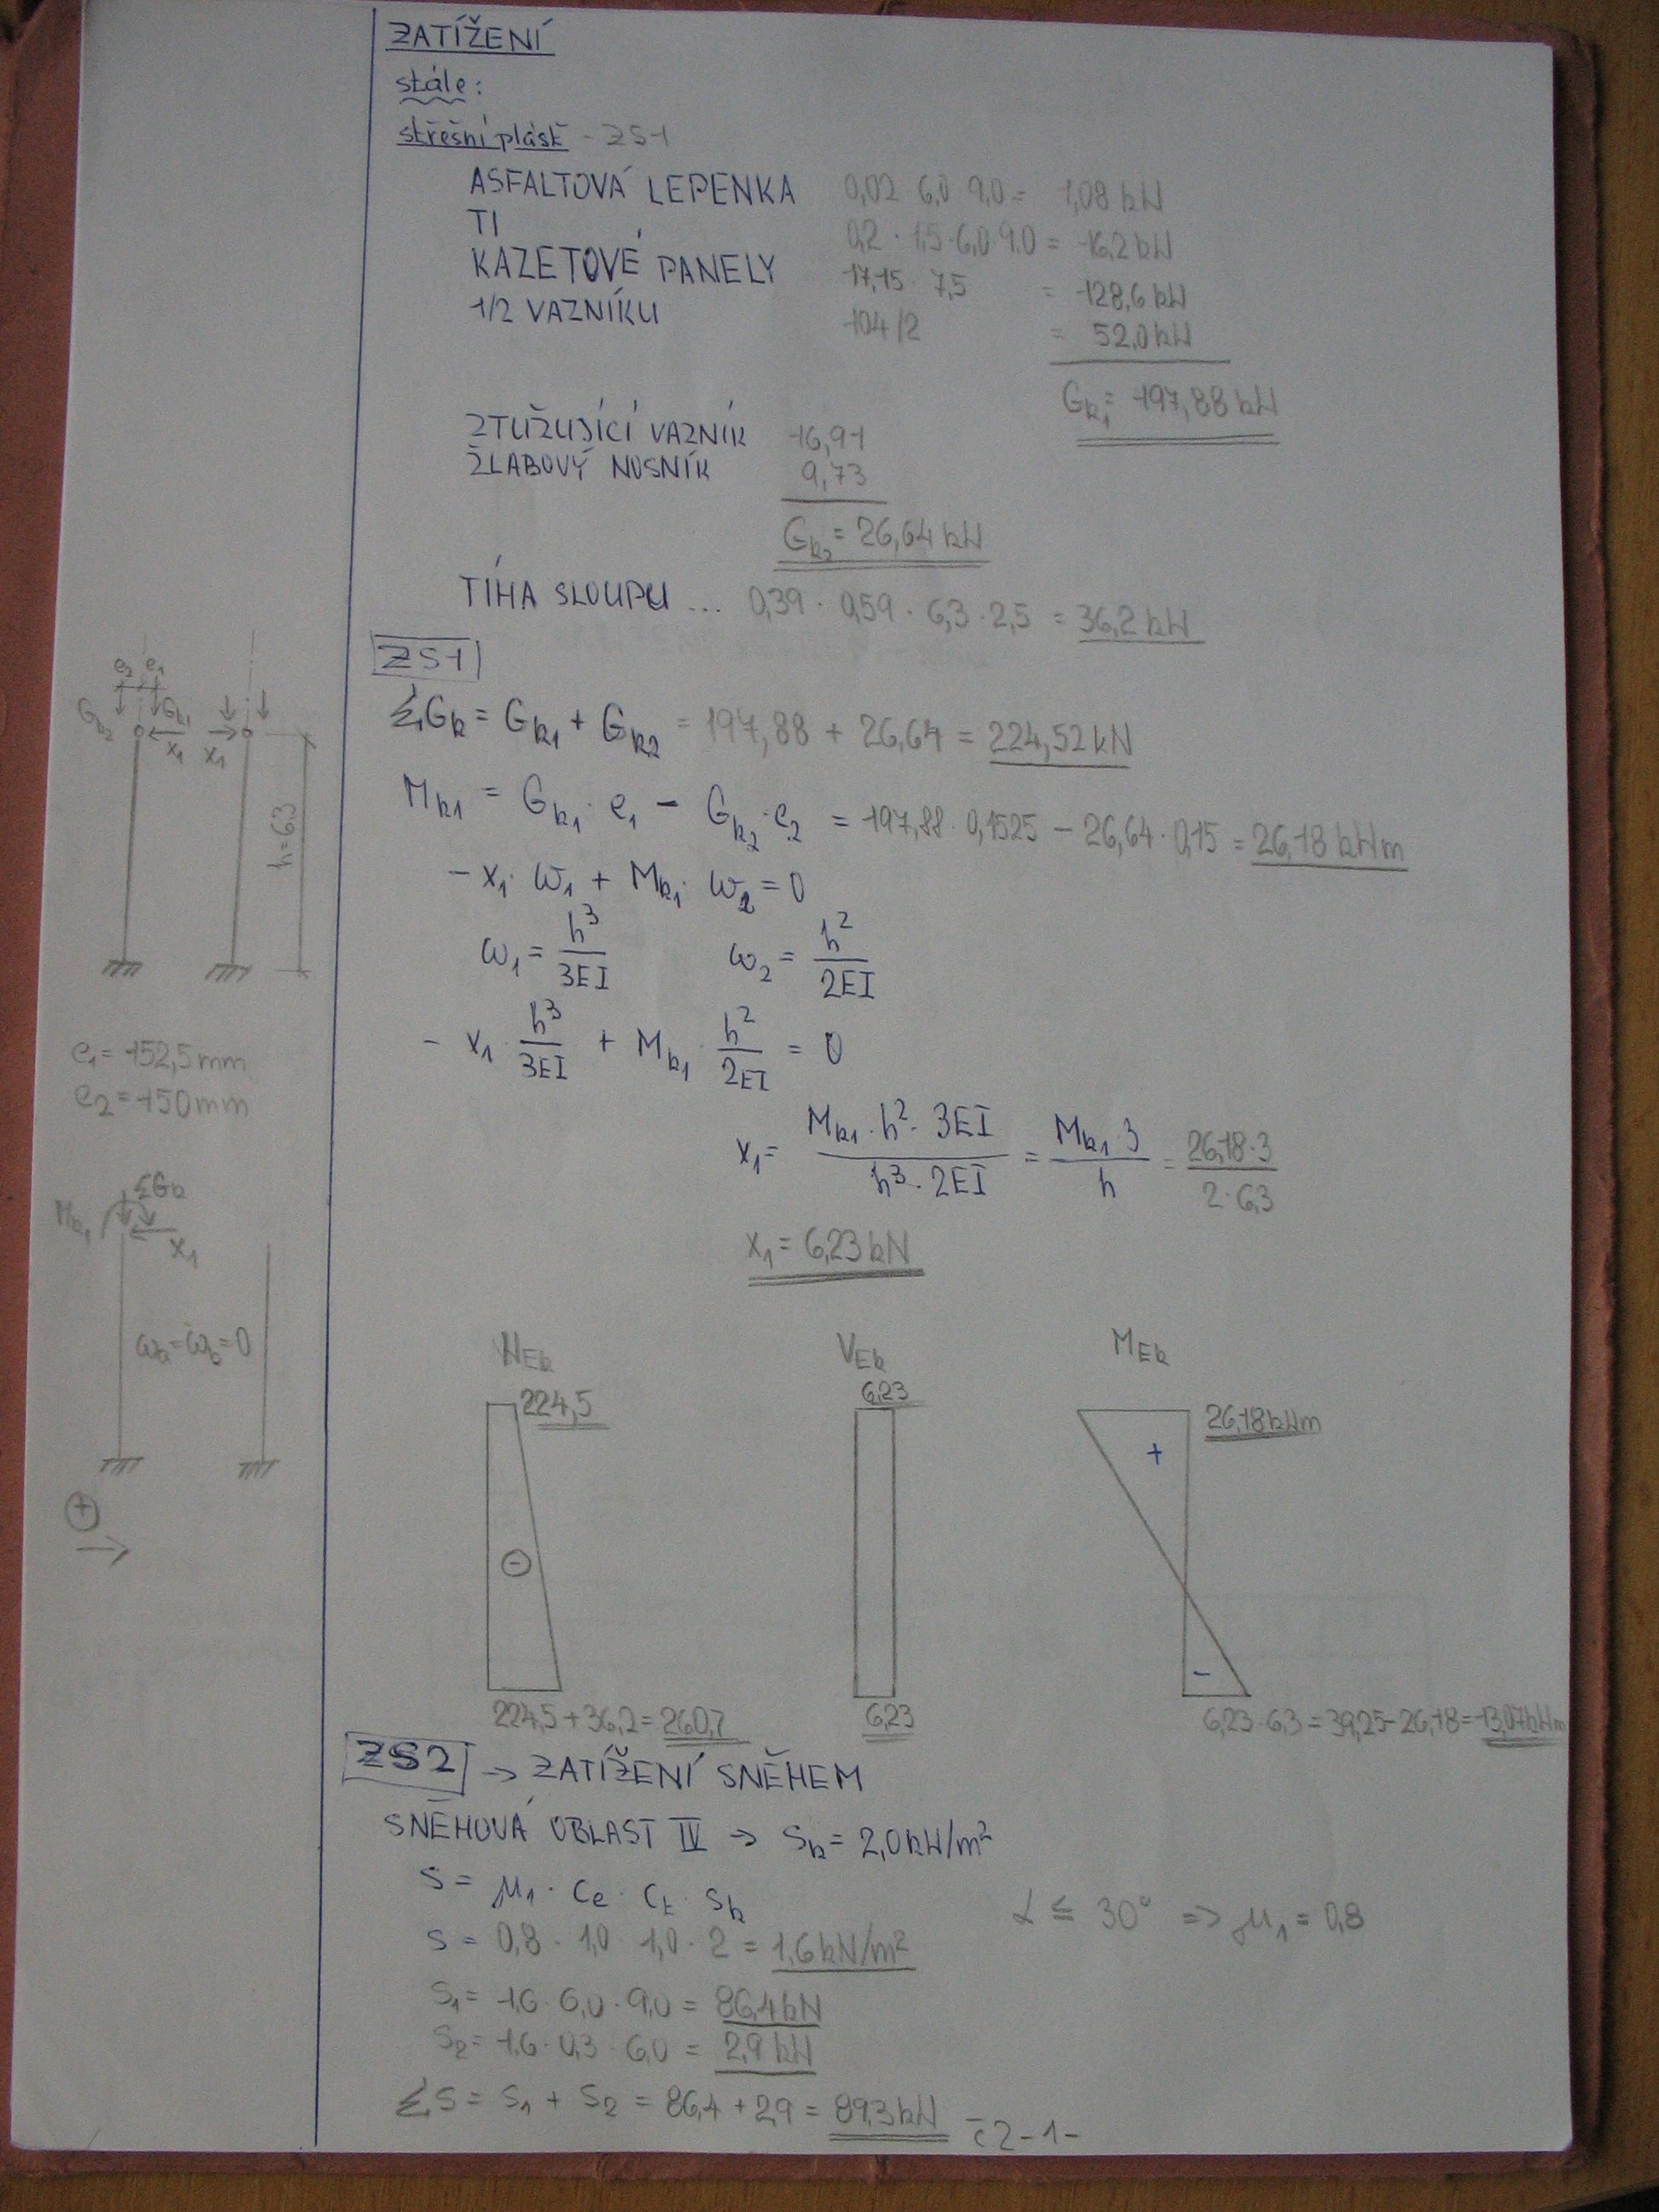 ZATÍŽENÍ
stále:
střešní plášť - ZS1
ASFALTOVÁ LEPENKA 0,02 · 6,0 · 9,0 = 1,08 kN
TI 0,2 · 1,5 · 6,0 · 9,0 = 16,2 kN
KAZETOVÉ PANELY 17,15 · 7,5 = 128,6 kN
1/2 VAZNÍKU 104/2 = 52,0 kN
Gk1 = 197,88 kN
ZTUŽUJÍCÍ VAZNÍK 16,91
ŽLABOVÝ NOSNÍK 9,73
Gk2 = 26,64 kN
TÍHA SLOUPU ... 0,39 · 0,59 · 6,3 · 2,5 = 36,2 kN
ZS1
e2 e1
Gk2 Gk1
x1 x1
h=6,3
ΣGk = Gk1 + Gk2 = 197,88 + 26,64 = 224,52 kN
Mk1 = Gk1 · e1 - Gk2 · e2 = 197,88 · 0,1525 - 26,64 · 0,15 = 26,18 kNm
- x1 · ω1 + Mk1 · ω2 = 0
ω1 = h³/3EI ω2 = h²/2EI
- x1 · h³/3EI + Mk1 · h²/2EI = 0
e1 = 152,5 mm
e2 = 150 mm
x1 = Mk1 · h² · 3EI / h³ · 2EI = Mk1 · 3 / h = 26,18 · 3 / 2 · 6,3
x1 = 6,23 kN
ΣGk
Mk1
x1
ωa = ωb = 0
+
NEk VEk MEk
224,5 6,23 26,18 kNm
+
-
-
224,5 + 36,2 = 260,7 6,23 6,23 · 6,3 = 39,25 - 26,18 = 13,07 kNm
ZS2 → ZATÍŽENÍ SNĚHEM
SNĚHOVÁ OBLAST IV → Sk = 2,0 kN/m²
S = μ1 · Ce · Ct · Sk
α ≤ 30° ⇒ μ1 = 0,8
S = 0,8 · 1,0 · 1,0 · 2 = 1,6 kN/m²
S1 = 1,6 · 6,0 · 9,0 = 86,4 kN
S2 = 1,6 · 0,3 · 6,0 = 2,9 kN
ΣS = S1 + S2 = 86,4 + 2,9 = 89,3 kN
č2-1-